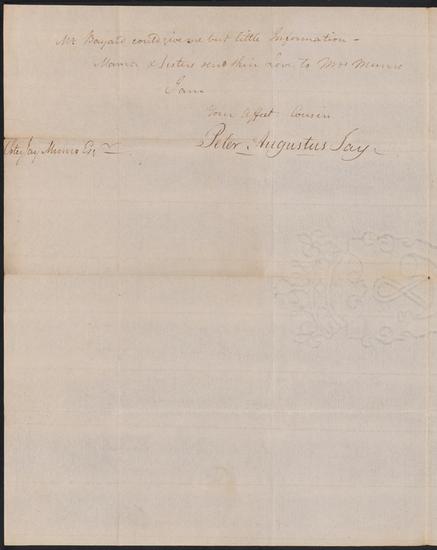 Mr Bayard could give me but little Information –
Mama & Sisters send their Love to Mrs Munro
I am
Your Affect. Cousin
Peter Augustus Jay –
Peter Jay Munro Esqr